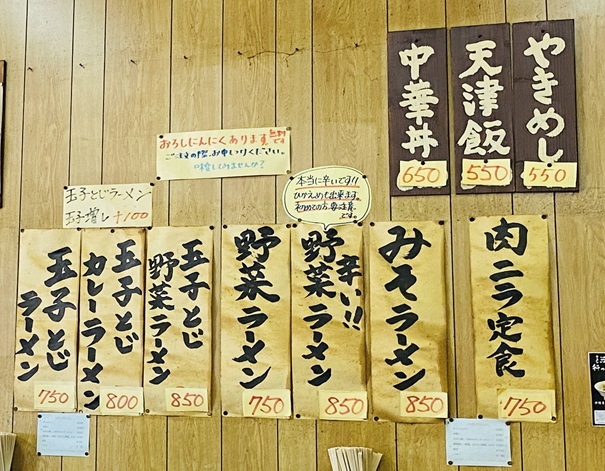 やきめし
550
天津飯
550
中華丼
650
おろしにんにくあります。無料です
ご注文の際、お申しつけください。
玉子とじラーメン
玉子増し +100
本当に辛いです!!
ひかえめも出来ます。
初めての方 要注意
です。
肉ニラ定食
750
みそラーメン
850
辛い!!
野菜ラーメン
850
野菜ラーメン
750
玉子とじ
野菜ラーメン
850
玉子とじ
カレーラーメン
800
玉子とじ
ラーメン
750